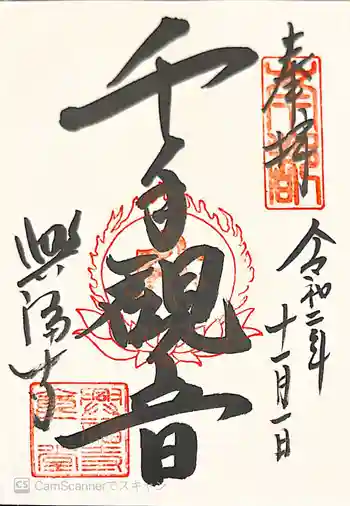 奉拝
令和二年
十一月一日
千手観音
興福寺
CamScannerでスキャン